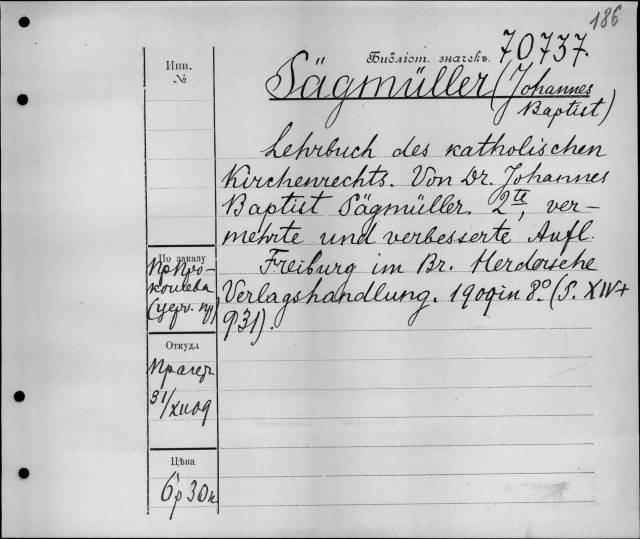 186
Библіот. значекъ. 70737.
Инв.
№
Sägmüller (Johannes
Baptist)
Lehrbuch des katholischen
Kirchenrechts. Von Dr. Johannes
Baptist Sägmüller. 2te, ver-
mehrte und verbesserte Aufl.
Freiburg im Br. Herdersche
Verlagshandlung. 1909 in 8° (S. XIV+
931).
По заказу
Пр. Про-
кошева
(церк. пр)
Откуда
31/XII 09
Цѣна
6р 30к